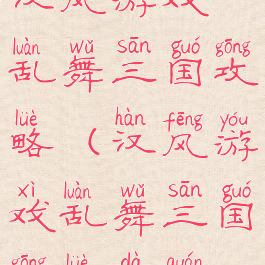 汉风游戏
luàn wǔ sān guó gōng
乱舞三国攻
lüè hàn fēng yóu
略（汉风游
xì luàn wǔ sān guó
戏乱舞三国
gōng lüè dà quán